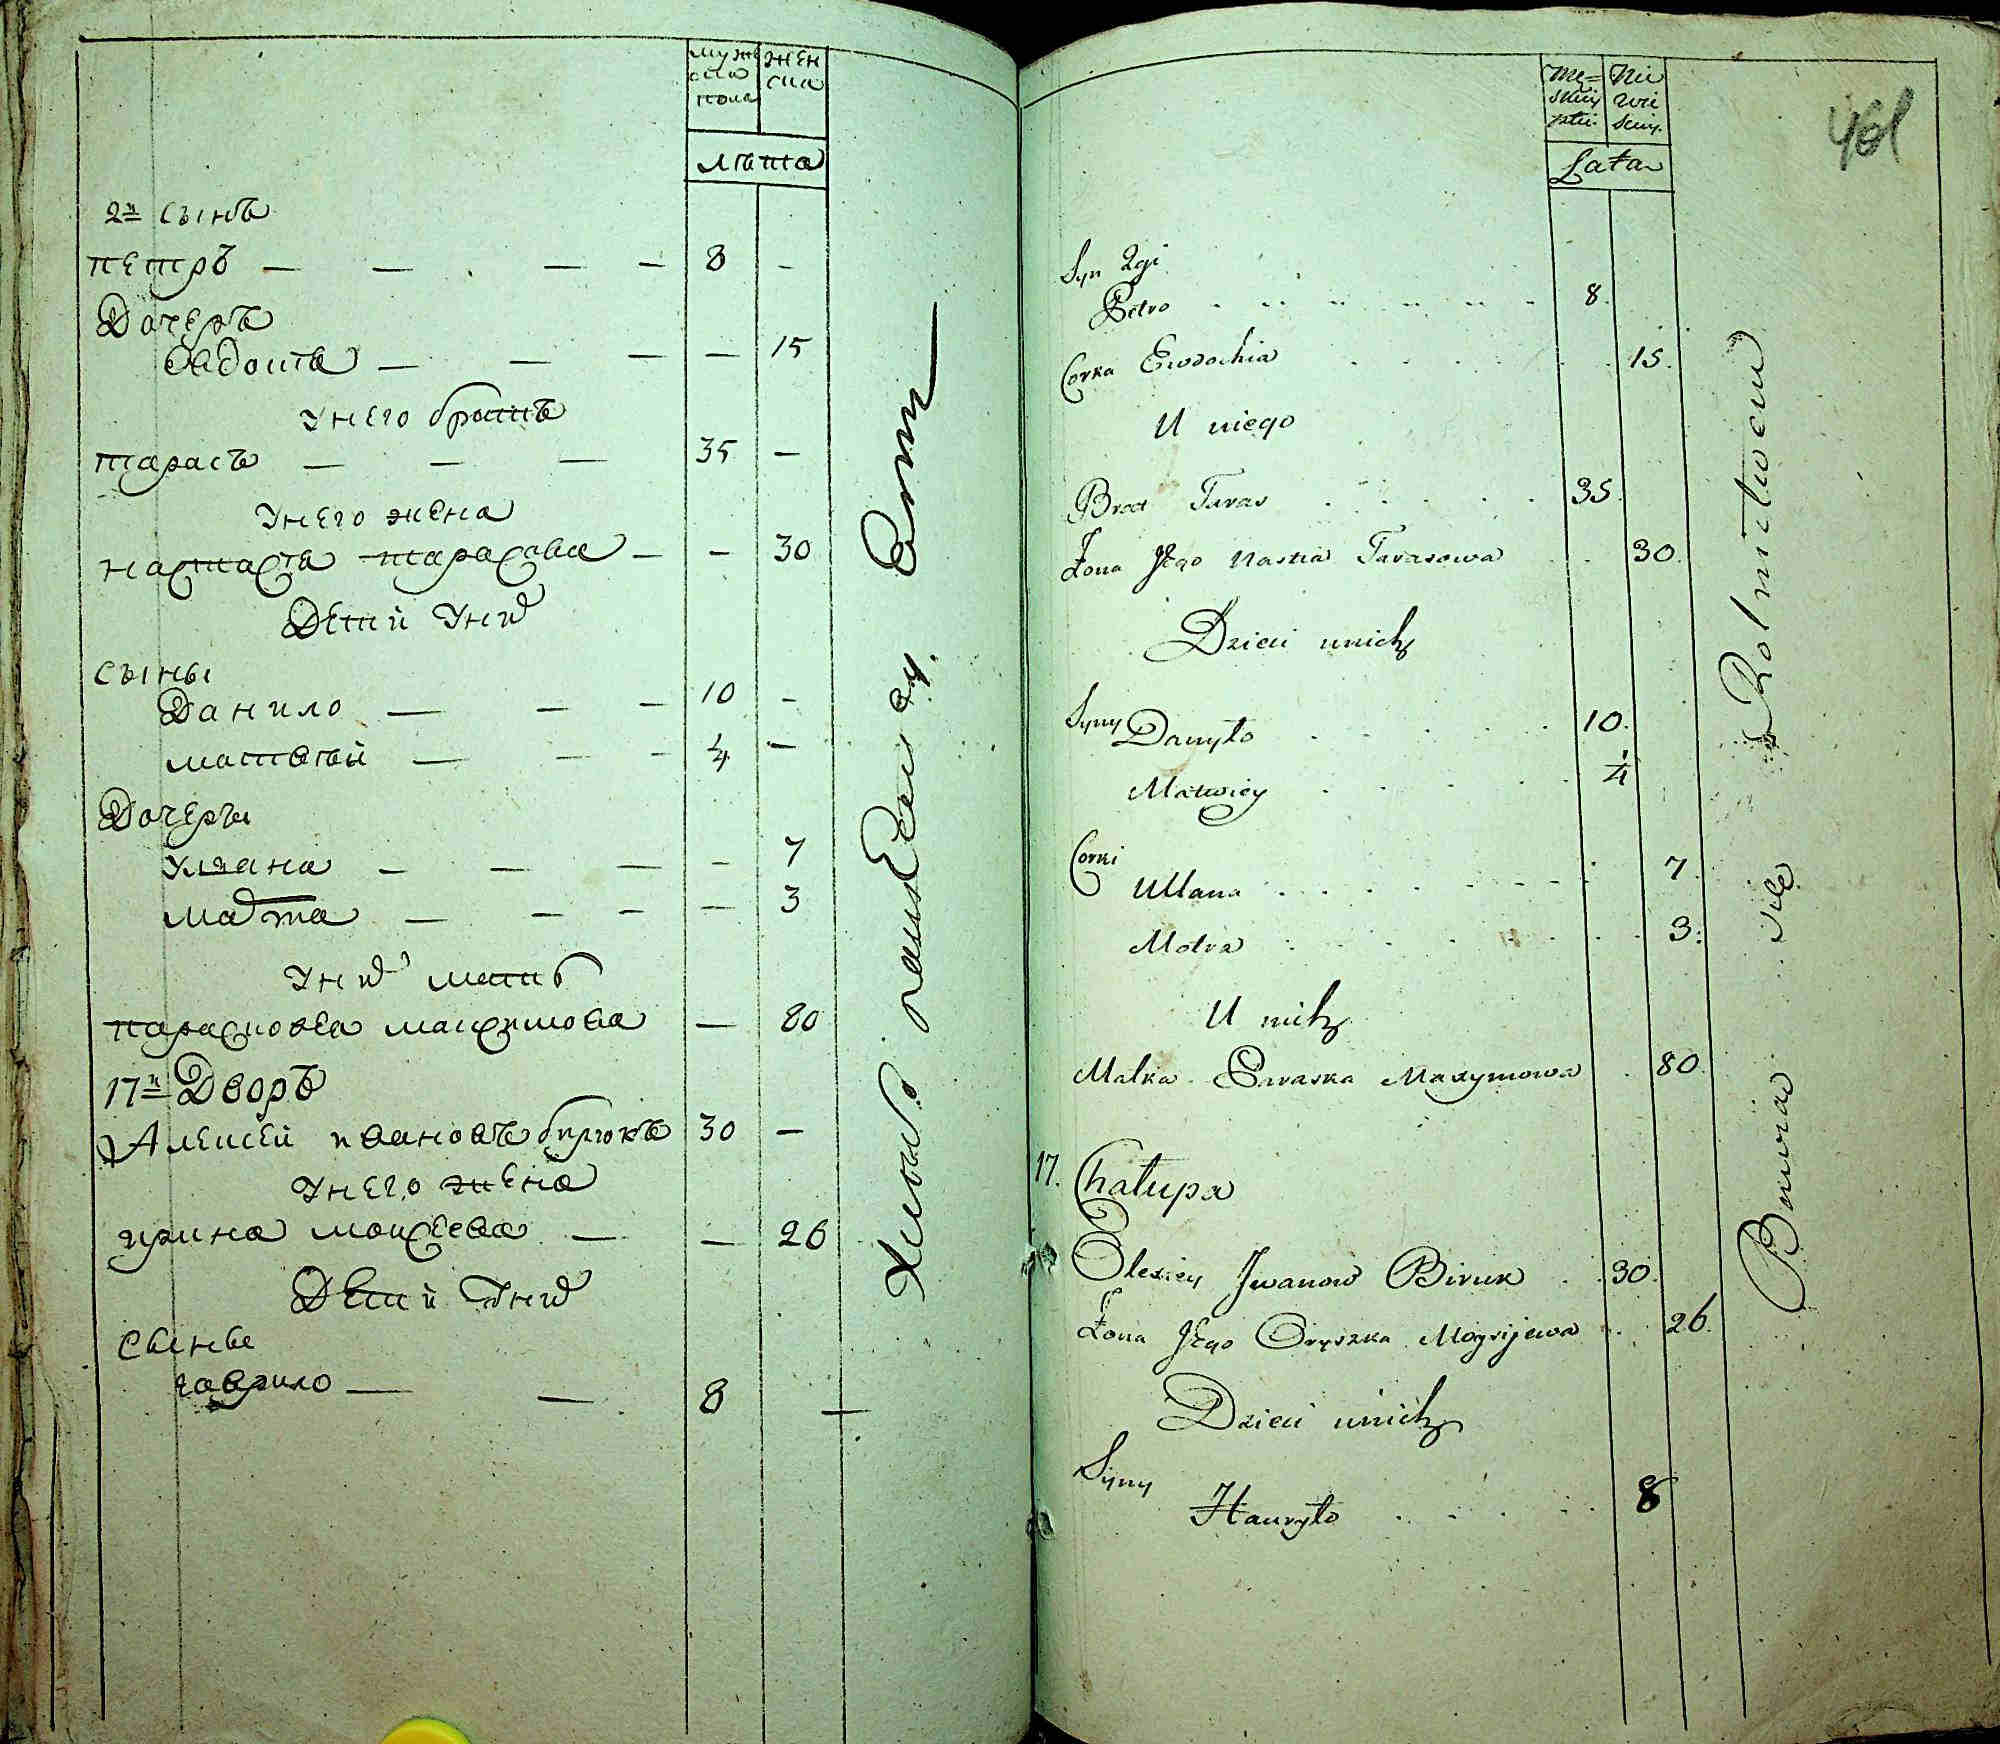 муж
ска
пола
жен
ска
лѣта
2й сынъ
петръ — — — — 8 -
Дочеръ
Евдотя — — — — 15
Унего братъ
тарасъ — — — 35 —
Унего жена
настася тарасова — — 30
Детй Уних
сыны
Данило — — — 10 -
матвѣй — — - 1/4 —
Дочеръи
Уляна — — — - 7
мотя — — — — 3
Уних мать
парасковея максимова — 80
17й Дворъ
Алексей ивановъ бирюкъ 30 —
Унего жена
ирина мосеева — — 26
Детй Уних
сыны
гаврило — — 8 —
Mę=
skiey
płci
Nie
wie
sciey.
Lata
461
Syn 2gi
Petro 8.
Corka Ewdochia 15.
U niego
Brat Taras 35.
Żona Jego Nastia Tarasowa 30.
Dzieci unich
Syny Danyło 10.
Matwiey 1/4
Corki
Ullana 7.
Motra 3.
U nich
Matka Paraska Maxymowa 80.
17. Chałupa
Olexiey Jwanow Biruk 30.
Żona Jego Oryszka Moysijewa 26.
Dzieci unich
Syny
Hawryło 8